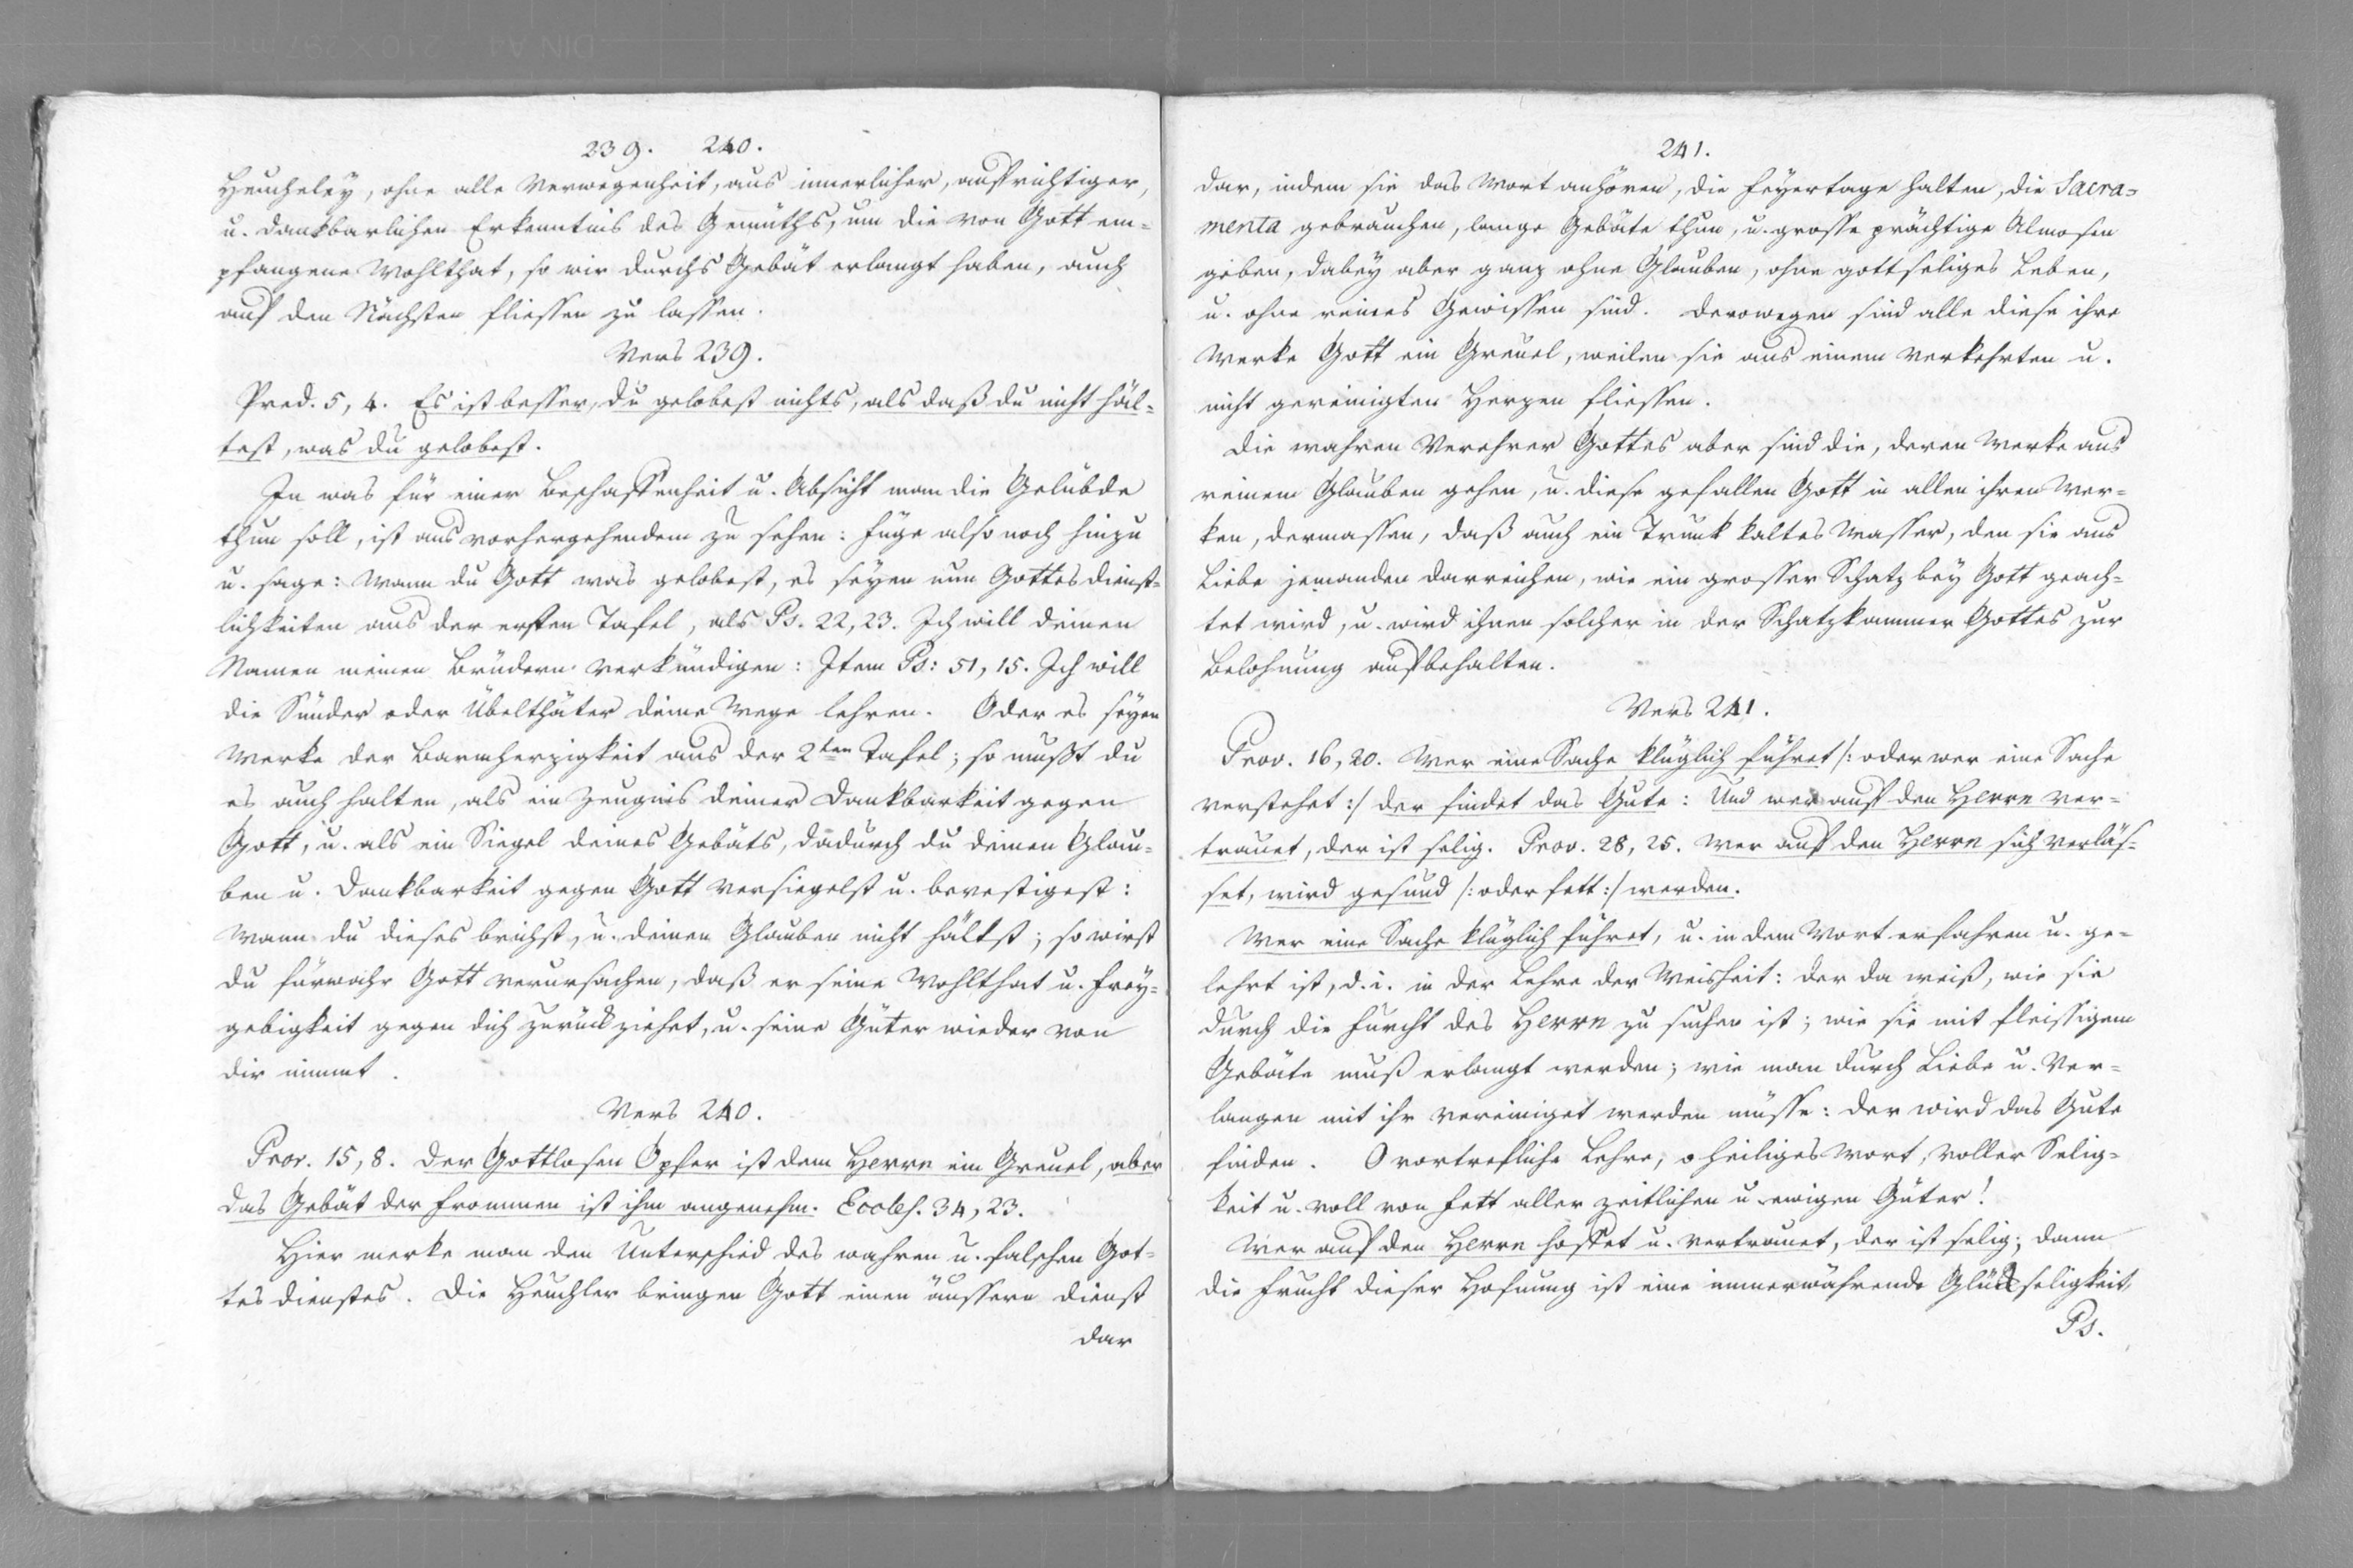 239. 240.
Heucheley, ohne alle Verwegenheit, aus innerlicher, aufrichtiger,
u. dankbarlichen Erkenntnis des Gemüths, um die von Gott em-
pfangene Wohlthat, so wir durchs Gebät erlangt haben, auch
auf den Nächsten fliessen zu lassen.
Vers 239.
Pred. 5, 4. Es ist besser, du gelobest nichts, als daß du nicht häl-
test, was du gelobest.
In was für einer Beschaffenheit u. Absicht man die Gelübde
thun soll, ist aus vorhergehendem zu sehen: füge also noch hinzu
u. sage: Wann du Gott was gelobest, es seyen nun Gottesdienst-
lichkeiten aus der ersten Tafel, als Ps. 22, 23. Ich will deinen
Namen meinen Brüdern verkündigen: Item Ps: 51, 15. Ich will
die Sünder oder Übelthäter deine Wege lehren. Oder es seyen
Werke der Barmherzigkeit aus der 2ten Tafel; so mußt du
es auch halten, als ein Zeugnis deiner Dankbarkeit gegen
Gott, u. als ein Siegel deines Gebäts, dadurch du deinen Glau-
ben u. Dankbarkeit gegen Gott versiegelst u. bevestigest:
Wann du dieses brichst, u. deinen Glauben nicht hältst; so wirst
du fürwahr Gott verursachen, daß er seine Wohlthat u. Frey-
gebigkeit gegen dich zurückziehet, u. seine Güter wieder von
dir nimmt.
Vers 240.
Prov. 15, 8. Der Gottlosen Opfer ist dem Herrn ein Greuel, aber
das Gebät der Frommen ist ihm angenehm. Eccles. 34, 23.
Hier merke man den Unterschied des wahren u. falschen Got-
tesdienstes. Die Heuchler bringen Gott einen äussern Dienst
dar
241.
dar, indem sie das Wort anhören, die Feyertage halten, die Sacra-
menta gebrauchen, lange Gebäte thun, u. grosse prächtige Almosen
geben, dabey aber ganz ohne Glauben, ohne gottseliges Leben,
u. ohne reines Gewissen sind. Derowegen sind alle diese ihre
Werke Gott ein Greuel, weilen sie aus einem verkehrten u.
nicht gereinigten Herzen fliessen.
Die wahren Verehrer Gottes aber sind die, deren Werke aus
reinem Glauben gehen, u. diese gefallen Gott in allen ihren Wer-
ken, dermassen, daß auch ein Trunk kaltes Wasser, den sie aus
Liebe jemanden darreichen, wie ein grosser Schatz bey Gott geach-
tet wird, u. wird ihnen solcher in der Schatzkammer Gottes zur
Belohnung aufbehalten.
Vers 241.
Prov. 16, 20. Wer eine Sache klüglich führet /: oder wer eine Sache
verstehet :/ der findet das Gute: Und wer auf den Herrn ver-
trauet, der ist selig. Prov. 28, 25. Wer auf den Herrn sich verläs-
set, wird gesund /: oder fett :/ werden.
Wer eine Sache klüglich führet, u. in dem Wort erfahren u. ge-
lehrt ist, d. i. in der Lehre der Weisheit: der da weiß, wie sie
durch die Furcht des Herrn zu suchen ist; wie sie mit fleissigem
Gebäte muß erlangt werden; wie man durch Liebe u. Ver-
langen mit ihr vereiniget werden müsse: der wird das Gute
finden. O vortrefliche Lehre, o heiliges Wort, voller Selig-
keit u. voll von Fett aller zeitlichen u. ewigen Güter!
Wer auf den Herrn hoffet u. vertrauet, der ist selig; dann
die Frucht dieser Hofnung ist eine immerwährende Glückseligkeit,
Ps.